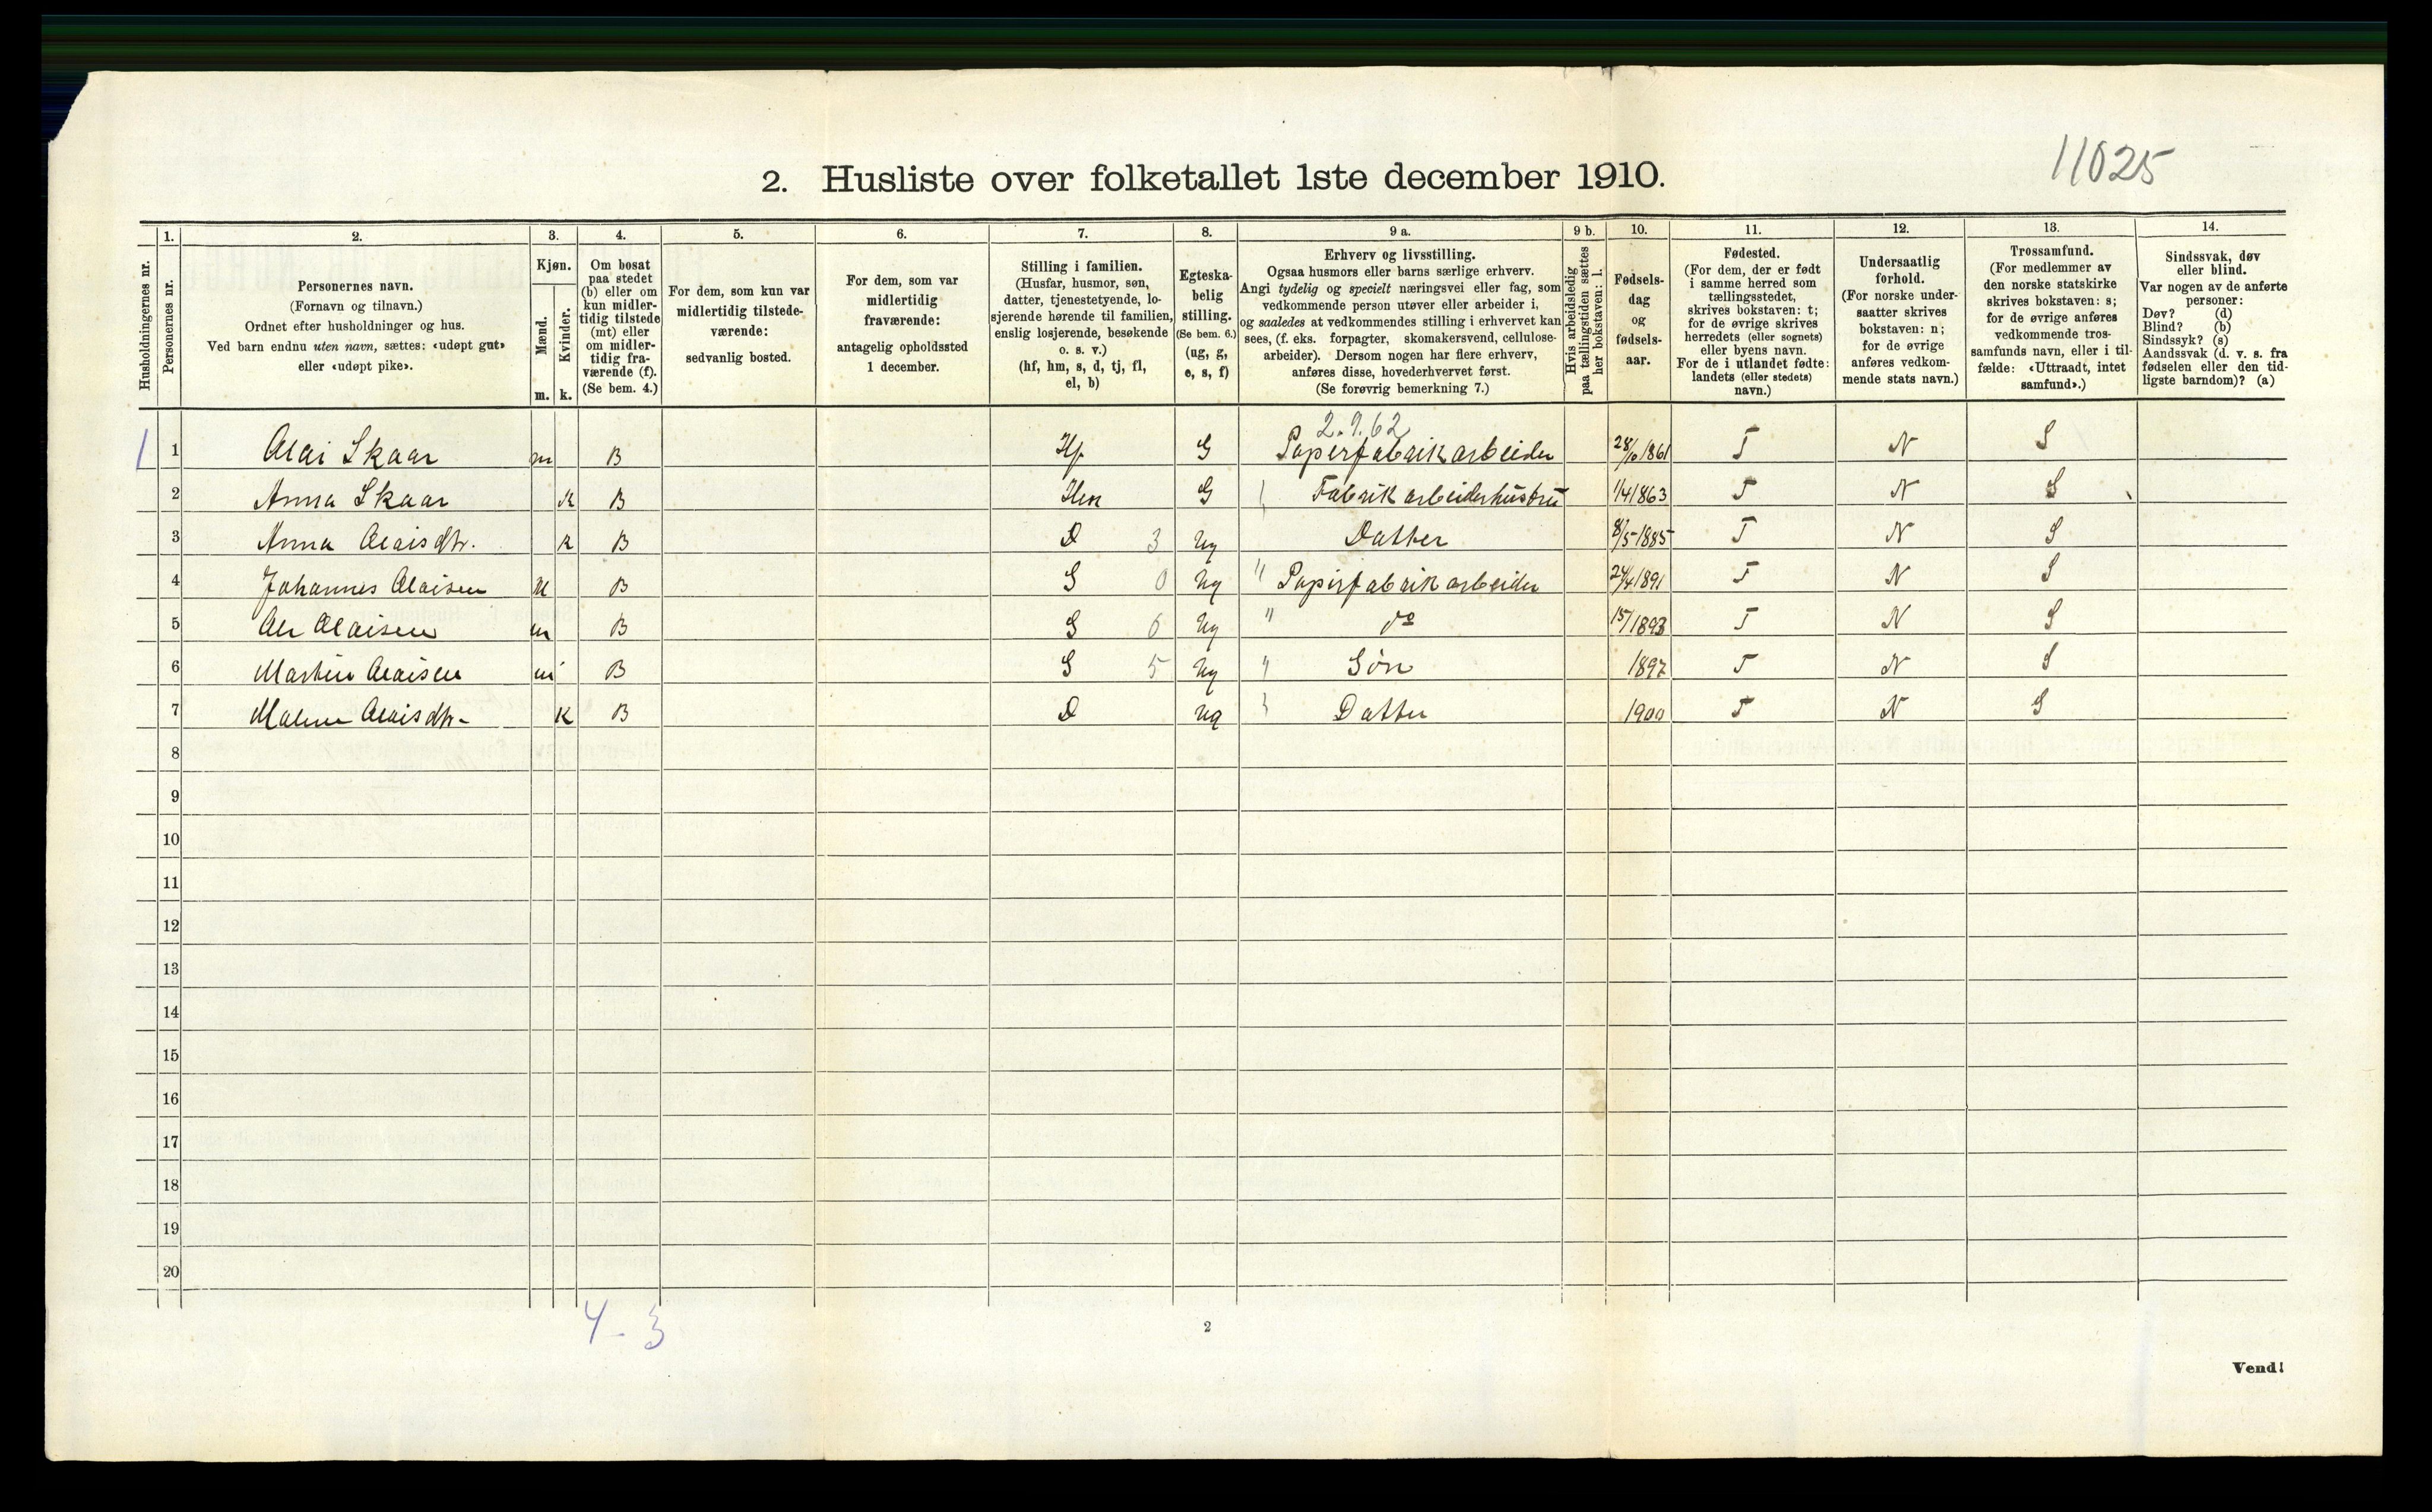 11025
2. Husliste over folketallet 1ste december 1910.
Husholdningernes nr.
1. Personernes nr.
2.
Personernes navn.
(Fornavn og tilnavn.)
Ordnet efter husholdninger og hus.
Ved barn endnu uten navn, sættes: «udøpt gut»
eller «udøpt pike».
3.
Kjøn.
Mænd. m.
Kvinder. k.
4.
Om bosat
paa stedet
(b) eller om
kun midler-
tidig tilstede
(mt) eller
om midler-
tidig fra-
værende (f).
(Se bem. 4.)
5.
For dem, som kun var
midlertidig tilstede-
værende:
sedvanlig bosted.
6.
For dem, som var
midlertidig
fraværende:
antagelig opholdssted
1 december.
7.
Stilling i familien.
(Husfar, husmor, søn,
datter, tjenestetyende, lo-
sjerende hørende til familien,
enslig losjerende, besøkende
o. s. v.)
(hf, hm, s, d, tj, fl,
el, b)
8.
Egteska-
belig
stilling.
(Se bem. 6.)
(ug, g,
e, s, f)
9 a.
Erhverv og livsstilling.
Ogsaa husmors eller barns særlige erhverv.
Angi tydelig og specielt næringsvei eller fag, som
vedkommende person utøver eller arbeider i,
og saaledes at vedkommendes stilling i erhvervet kan
sees, (f. eks. forpagter, skomakersvend, cellulose-
arbeider). Dersom nogen har flere erhverv,
anføres disse, hovederhvervet først.
(Se forøvrig bemerkning 7.)
9 b.
Hvis arbeidsledig
paa tællingstiden sættes
her bokstaven: l.
10.
Fødsels-
dag
og
fødsels-
aar.
11.
Fødested.
(For dem, der er født
i samme herred som
tællingsstedet,
skrives bokstaven: t;
for de øvrige skrives
herredets (eller sognets)
eller byens navn.
For de i utlandet fødte:
landets (eller stedets)
navn.)
12.
Undersaatlig
forhold.
(For norske under-
saatter skrives
bokstaven: n;
for de øvrige
anføres vedkom-
mende stats navn.)
13.
Trossamfund.
(For medlemmer av
den norske statskirke
skrives bokstaven: s;
for de øvrige anføres
vedkommende tros-
samfunds navn, eller i til-
fælde: «Uttraadt, intet
samfund».)
14.
Sindssvak, døv
eller blind.
Var nogen av de anførte
personer:
Døv? (d)
Blind? (b)
Sindssyk? (s)
Aandssvak (d. v. s. fra
fødselen eller den tid-
ligste barndom)? (a)
2.9.62
1 1 Skaar m B Hf G Papirfabrikarbeider 1861 T N S
2 Anna Skaar K B Hm G Fabrikarbeiderhustru 1/4 1863 T N S
3 Anna K B D 3 Ug Datter 8/5 1885 T N S
4 Johannes M B S 0 Ug " Papirfabrikarbeider 24/4 1891 T N S
5 m B S 6 Ug " do 15/ 1893 T N S
6 Martin m B S 5 Ug " Søn 1897 T N S
7 K B D Ug " Datter 1900 T N S
8
9
10
11
12
13
14
15
16
17
18
19
20
4 - 3
2
Vend!